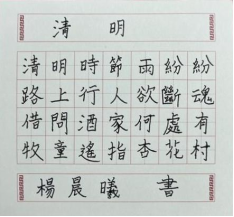 清明
清明時節雨紛紛
路上行人欲斷魂
借問酒家何處有
牧童遙指杏花村
楊晨曦 書